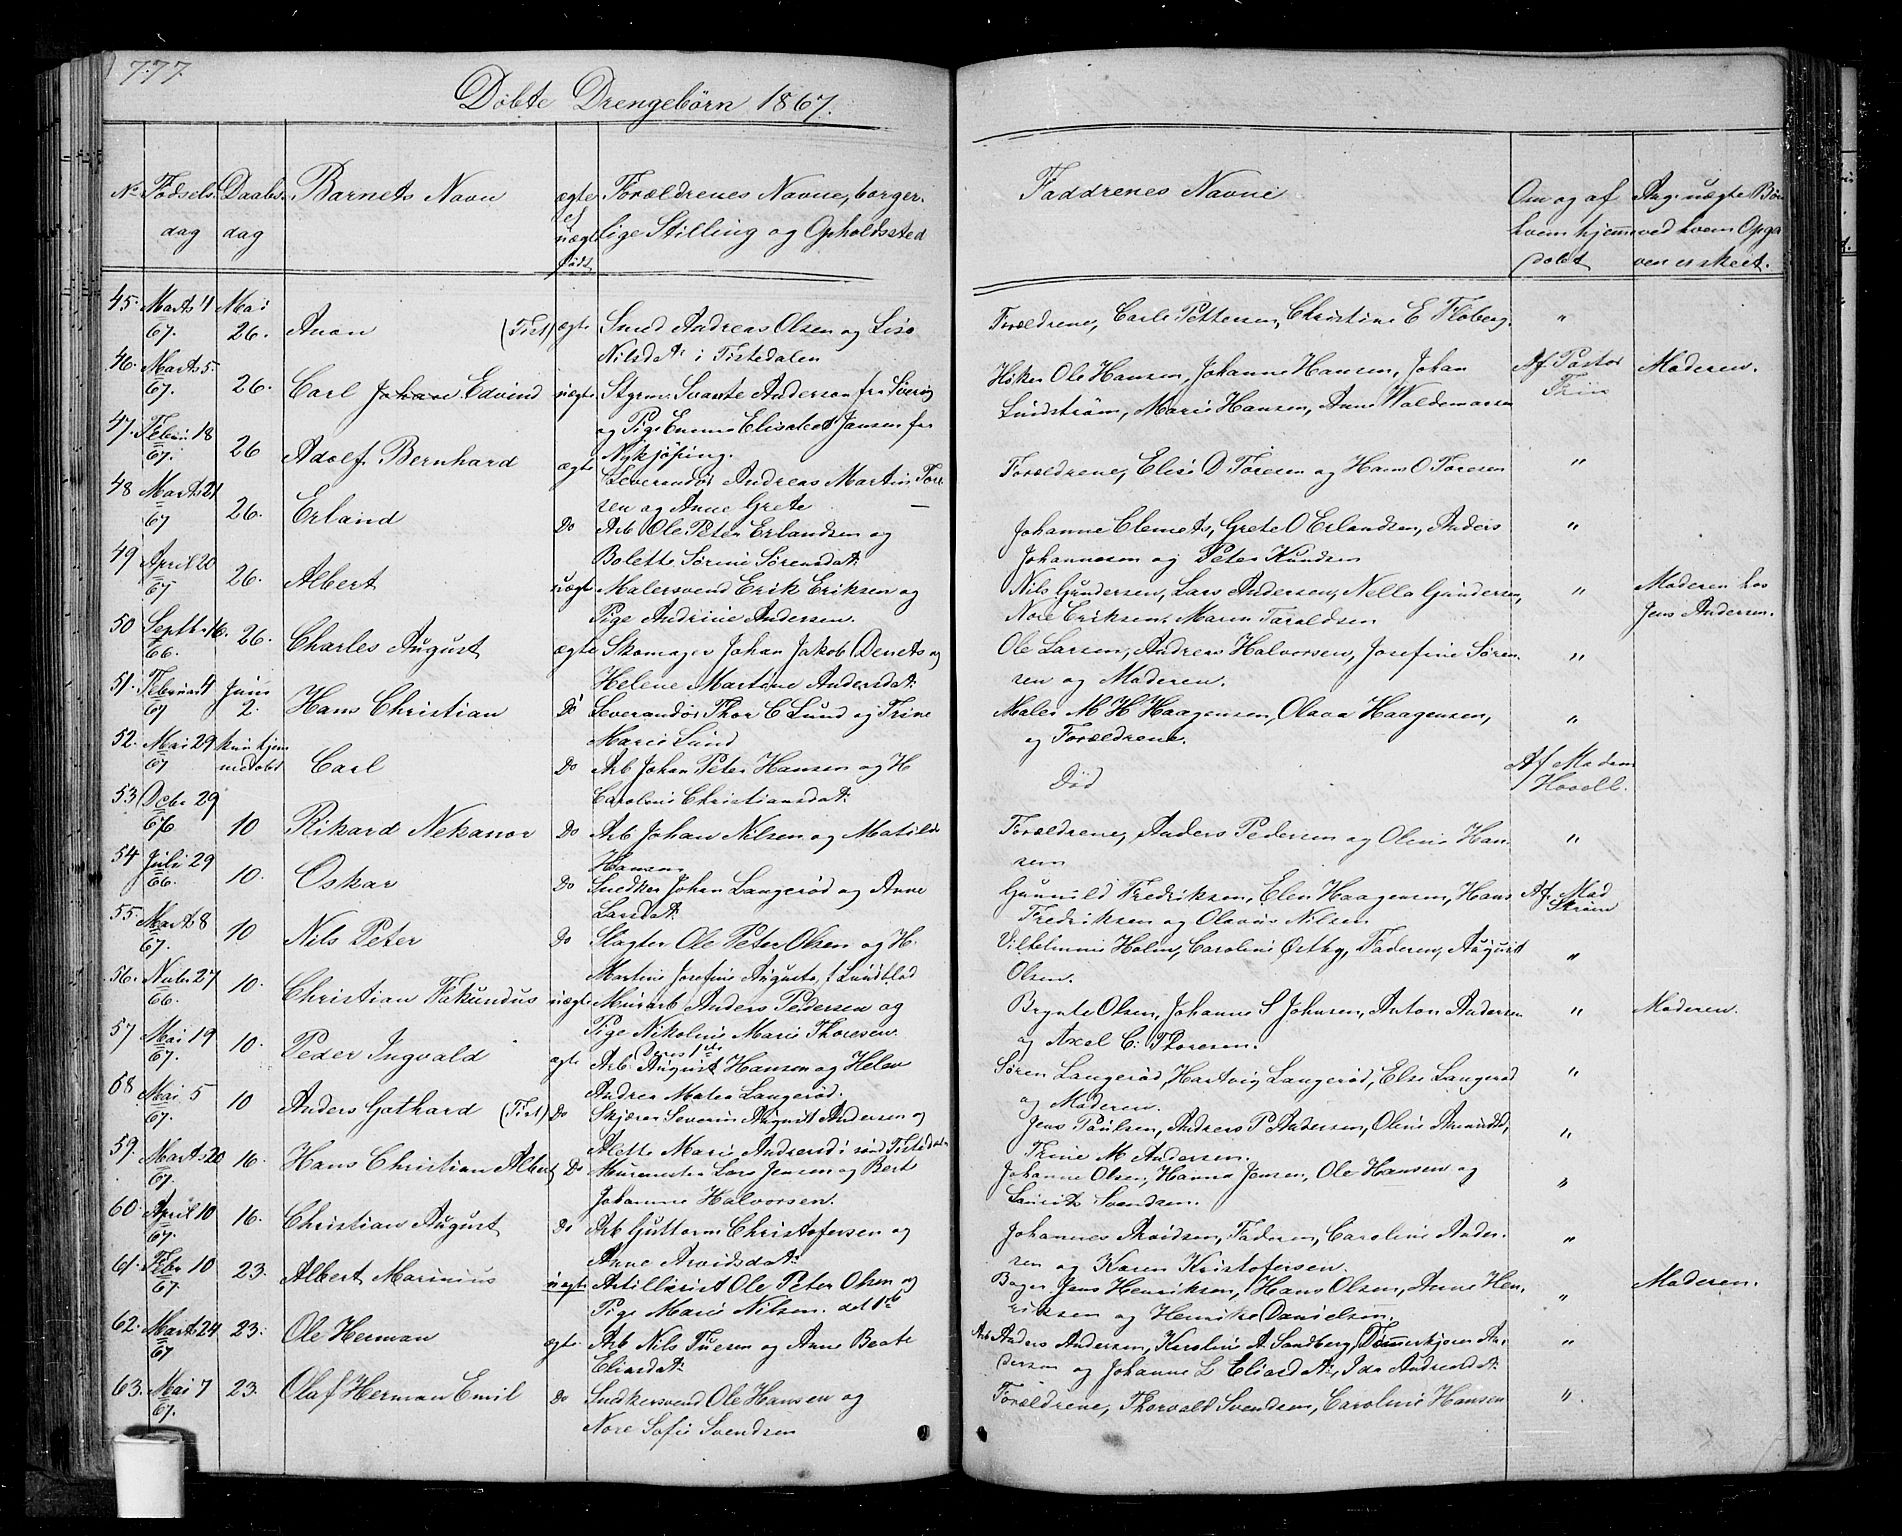 777.
Döbte Drengebörn 1867.
No Födsels dag
Daabs dag
Barnets Navn
ægte el uægte födt
Forældrenes Navne, borgerlige Stilling og Opholdssted
Faddrenes Navne
Om og af hvem hjemmedöbt
Ang. uægte Börn ved hvem Opgaven er skeet.
45. Marts 4 67. Mai 26. Anon (Tist) ægte Smed Andreas Olsen og Lise
Nilsdat: i Tistedalen
Forældrene, Carle Pettersen, Christine E Floberg. "
46. Marts 5. 67. 26. Carl Johan Edvind uægte Styrm. Svante Anderson fra Sverig
og Pige Emma Elisabet Jansen fra
Nykjöping.
Höker Ole Hansen, Johanne Hansen, Johan
Lindström, Marie Hansen, Anne Waldemarsen
Af Pastor
Mo​deren.
47. Febru 18 67. 26 Adolf Bernhard ægte Leverandör Andreas Martin Tore-
sen og Anne Grete —
Forældrene, Elise O Toresen og Hans O Toresen "
48 Marts 21 67 26. Erland Do Arb Ole Peter Erlandsen og
Bolette Sörine Sörensdat:
Johanne Clemets, Grete O Erlandsen, Anders
Johannesen og Peter Knudsen "
49 April 20 67 26. Albert uægte Malersvend Erik Eriksen og
Pige Andrine Andersen.
Nils Gundersen, Lars Andersen, Nella Gundersen,
Nore Eriksen, Maren Taraldsen "
Moderen hos
Jens Andersen.
50 Septbr 16. 66. 26. Charles August ægte Skomager Johan Jakob Denets og
Helene Martine Andersdat:
Ole Larsen, Andreas Halvorsen, Josefine Sören-
sen og Moderen. "
51. Februar 4 67 Juni 2. Hans Christian Do Leverandör Thor C Lund og Trine
Marie Lund
Maler M H Haagensen, Olava Haagensen,
og Forældrene. "
52. Mai 29 67 kun hjemmedöbt Carl Do Arb Johan Peter Hansen og H
Caroline Christiansdat:
Död
Af Madam
Hovell.
53 Octbr 29 66 10 Rikard Nekanor Do Arb Johan Nilsen og Matilde
Hansen
Forældrene, Anders Pedersen og Oline Han-
sen "
54 Juli 29 66. 10. Oskar Do Snedker Johan Langeröd og Anne
Larsdat:
Gunnild Fredriksen, Elen Haagensen, Hans
Fredriksen og Olavus Nilsen
Af Mad
Ström
55. Marts 8 67. 10 Nils Peter Do Slagter Ole Peter Olsen og H.
Martine Josefine Augusta, f Lundblad
Vilhelmine Holm, Caroline Östby, Faderen, August
Olsen. "
56. Nvbr 27 66. 10. Christian Fakundus uægte Murarb Anders Pedersen og
Pige Nikoline Marie Thoresen.
Deres 1ste
Brynte Olsen, Johanne S Johnsen, Anton Andersen
og Axel C: Thoresen. "
Moderen.
57 Mai 19 67. 10. Peder Ingvald ægte Arb August Hansen og Helen
Andrea Matea Langeröd.
Sören Langeröd, Hartvig Langeröd, Else Langeröd
og Moderen. "
58 Mai 5 67. 10 Anders Gothard (Tist) Do Skjærer Severin August Andersen og
Alette Marie Andersd: i ... Tistedalen
Jens Paulsen, Anders P Andersen, Oline Amundsd,
Trine M Andersen. "
59. Marts 20 67. 16. Hans Christian Albert Do Murmester Lars Jensen og Bert
Johanne Halvorsen.
Johanne Olsen, Hanna Jensen, Ole Hansen og
Laurits Svendsen. "
60. April 10 67. 16. Christian August Do Arb Guttorm Christofersen og
Anne Arvidsdat:
Johannes Arvidsen, Faderen, Caroline Ander-
sen og Karen Kristofersen. "
61. Febr 10 67. 23. Albert Marinius uægte Artillerist Ole Peter Olsen og
Pige Marie Nilsen. det 1ste
Bager Jens Henriksen, Hans Olsen, Anne Hen-
riksen og Henrike Danielsen. "
Moderen.
62. Marts 24 67 23. Ole Herman ægte Arb Nils Tuesen og Anne Beate
Eliasdat:
Arb Anders Andersen, Karoline A. Sandberg, Tömmerkjörer An-
dersen og Johanne L Eliasdat:, Ida Andreasdat: "
63. Mai 7 67. 23. Olaf Herman Emil Do Snedkersvend Ole Hansen og
Nore Sofie Svendsen
Forældrene, Thorvald Svendsen, Caroline Hansen "